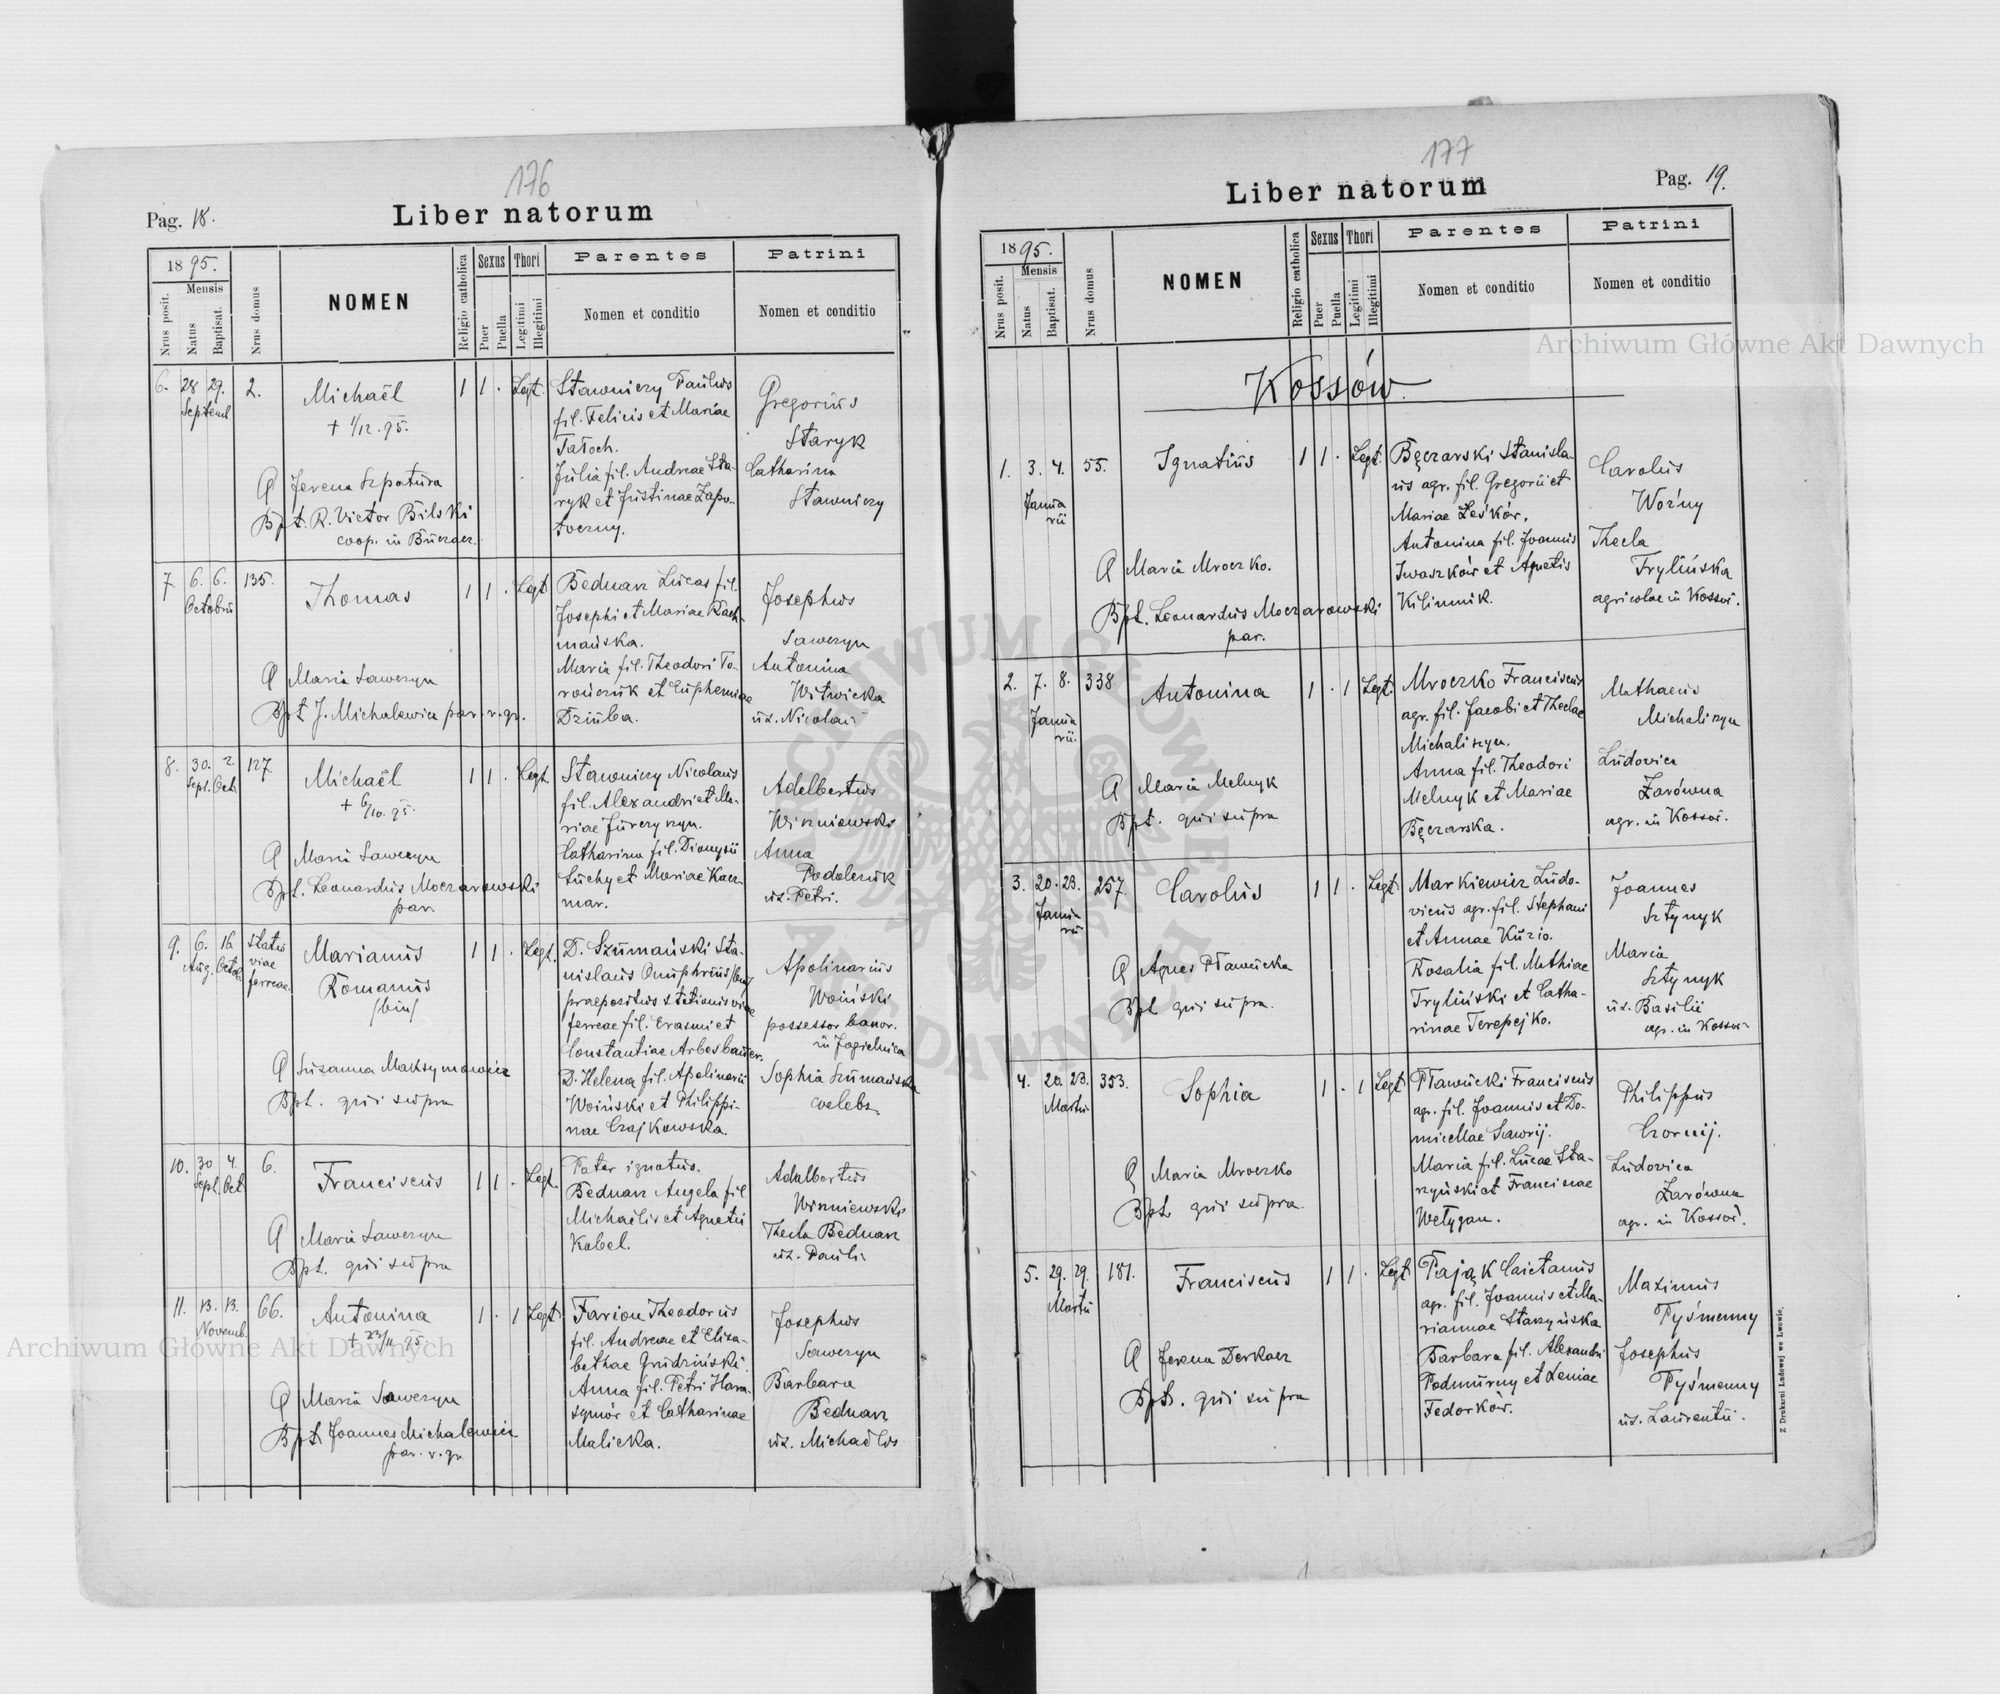 176
Pag. 18.
Liber natorum
1895.
Mensis
Nrus posit.
Natus
Baptisat.
Nrus domus
NOMEN
Religio catholica
Sexus
Puer
Puella
Thori
Legitimi
Illegitimi
Parentes
Nomen et conditio
Patrini
Nomen et conditio
6. 28 29. 2. Michaël 1 1 . Legt.
Septemb
+ 1/12. 95.
O Jerena Szpatura
Bpt. R. Victor Bilski
coop. in Buczacz.
Stawniczy Paulus
fil. Felicis et Mariae
Tatoch.
Julia fil. Andreae Sta-
ryk et Justinae Zapo-
toczny.
Gregorius
Staryk
Catharina
Stawniczy
7. 6. 6. 135. Thomas 1 1 . Legt
Octobris
O Maria Saweczyn
Bpt J. Michalewicz par. r. gr.
Bednarz Lucas fil.
Josephi et Mariae Rach-
mańska.
Maria fil. Theodori To-
rończuk et Euphemiae
Dziuba.
Josephus
Saweczyn
Antonina
Witwicka
ux. Nicolai
8. 30. 2. 127 Michaël 1 1 . Legt.
Sept. Oct.
+ 6/10. 95.
O Maria Saweczyn
Bpt. Leonardus Moczarowski
par.
Stawniczy Nicolaus
fil. Alexandri et Ma-
riae Jurczyszyn.
Catharina fil. Dionysii
Łuchy et Mariae Kacz-
mar.
Adelbertus
Wiszniowski
Anna
Podolczuk
ux. Petri.
9. 6. 16. Statio Marianus 1 1 . Legt.
Aug. Octob. viae
ferreae
Romanus
/bin/
O Susanna Maksymowicz
Bpt. qui supra
D. Szumański Sta-
nislaus Onuphrius /bin/
praepositus stationis viae
ferreae fil. Erasmi et
Constantiae Arbesbauer.
D. Helena fil. Apolinarii
Woiński et Philippi-
nae Czajkowska.
Apolinarius
Woiński
possessor bonor.
in Jagielnica
Sophia Szumańska
coelebs.
10. 30 4. 6. Franciscus 1 1 . Legt.
Sept. Oct
O Maria Saweczyn
Bpt. qui supra
Pater ignotus.
Bednarz Angela fil.
Michaëlis et Agnetis
Kobel.
Adalbertus
Wiszniewski
Thecla Bednarz
ux. Pauli.
11. 13. 13. 66. Antonina 1 . 1 Legt.
Novemb.
+ 23/11 95.
O Maria Saweczyn
Bpt. Joannes Michalewicz
par. r. gr.
Farion Theodorus
fil. Andreae et Elisa-
bethae Grudziński.
Anna fil. Petri Hara-
symów et Catharinae
Malicka.
Josephus
Saweczyn
Barbara
Bednarz
ux. Michaëlis
177
Liber natorum
Pag. 19.
1895.
Mensis
Nrus posit.
Natus
Baptisat.
Nrus domus
NOMEN
Religio catholica
Sexus
Puer
Puella
Thori
Legitimi
Illegitimi
Parentes
Nomen et conditio
Patrini
Nomen et conditio
Kossów
1. 3. 4. 55. Ignatius 1 1 . Legt.
Janua
rii
O Maria Mroczko.
Bpt. Leonardus Moczarowski
par.
Bęczarski Stanisla-
us agr. fil. Gregorii et
Mariae Leśków.
Antonina fil. Joannis
Iwaszków et Agnetis
Kilimnik.
Carolus
Woźny
Thecla
Trylińska
agricolae in Kossów.
2. 7. 8. 338 Antonina 1 . 1 Legt.
Janua
rii.
O Maria Melnyk
Bpt. qui supra
Mroczko Franciscus
agr. fil. Jacobi et Theclae
Michaliszyn.
Anna fil. Theodori
Melnyk et Mariae
Bęczarska.
Mathaeus
Michaliszyn
Ludovica
Żarówna
agr. in Kossów.
3. 20. 23. 257. Carolus 1 1 . Legt.
Janua
rii
O Agnes Pławucka
Bpt qui supra.
Markiewicz Ludo-
vicus agr. fil. Stephani
et Annae Kuzio.
Rosalia fil. Mathiae
Tryliński et Catha-
rinae Terepejko.
Joannes
Sztynyk
Maria
Sztynyk
ux. Basilii
agr. in Kossów
4. 20. 23. 353. Sophia 1 . 1 Legt
Martii
O Maria Mroczko
Bpt. qui supra.
Pławucki Franciscus
agr. fil. Joannis et Do-
micellae Sawrij.
Maria fil. Lucae Sta-
rzyński et Franciscae
Wełygan.
Philippus
Czornij.
Ludovica
Żarówna
agr. in Kossów.
5. 29. 29. 181. Franciscus 1 1 . Legt
Martii
O Jerena Derkacz
Bpt. qui supra
Pająk Caietanus
agr. fil. Joannis et Ma-
riannae Starzyńska
Barbara fil. Alexandri
Podmurny et Xeniae
Fedorków.
Maximus
Pyśmenny
Josephus
Pyśmenny
ux. Laurentii.
Z Drukarni Ludowej we Lwowie.
Archiwum Główne Akt Dawnych
Archiwum Główne Akt Dawnych
ARCHIWUM GŁÓWNE AKT DAWNYCH